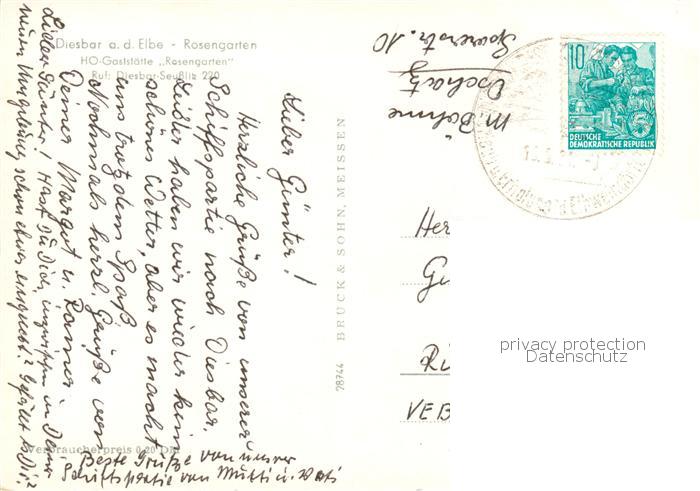 Diesbar a. d. Elbe - Rosengarten
HO-Gaststätte „Rosengarten"
Ruf: Diesbar-Seußlitz 220
Lieber Günter!
Herzliche Grüße von unserer
Schiffspartie nach Diesbar.
Leider haben wir wieder kein
schönes Wetter, aber es macht
uns trotzdem Spaß
Nochmals herzl. Grüße von
Deiner Margot u. Rainer
Lieber Günter! Hast Du Dich inzwischen in Deine
neuen Umgebung schon etwas eingelebt? Gefällt es Dir?
Beste Grüße von unsrer
Schiffspartie von Mutti u. Vati
Verbraucherpreis 0,20 DM
28744 BRÜCK & SOHN, MEISSEN
M. Böhme
Oschatz
str. 10
10
DEUTSCHE
DEMOKRATISCHE REPUBLIK
5
Her
Gü
Ri
VEB
privacy protection
Datenschutz